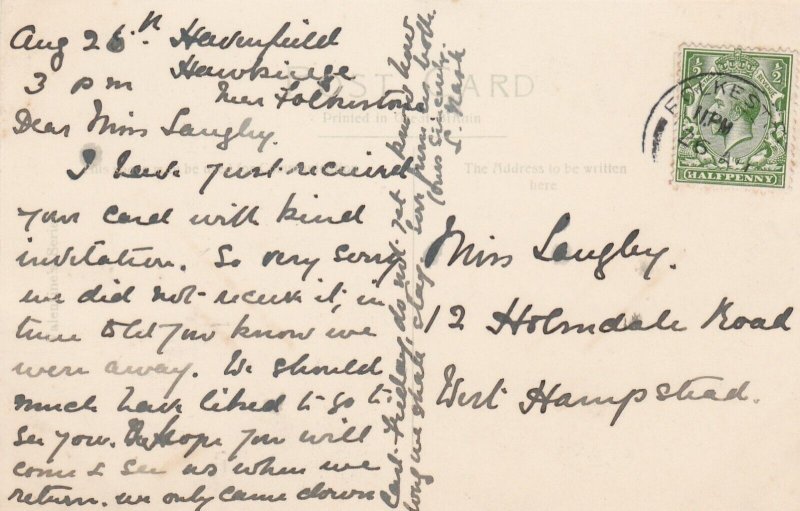 Aug 26th Havenfield
3 pm Hawkinge
Near Folkestone
Dear Miss Langby.
I have just received
your card with kind
invitation. So very sorry
we did not receive it, in
time to let you know we
were away. We should
much have liked to go to
see you. hope you will
come & see us when we
return. we only came down
Last Friday, do not yet know how
long we shall stay, both
Yours sincerely
L. Nash
POST CARD
Printed in Great Britain
The Address to be written
here
Miss Langby.
12 Holmdale Road
West Hampstead.
FOLKEST
11 PM
26
HALFPENNY